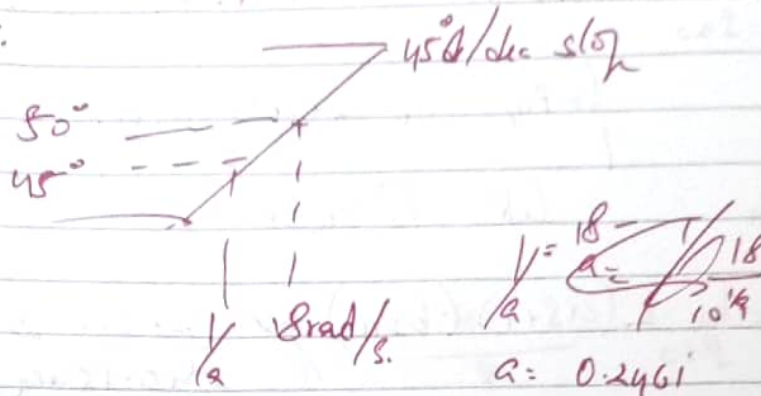 45°/dec slop
50°
45°
1/a
8rad/s.
1/a = 18
18
10^1/9
a = 0.2461